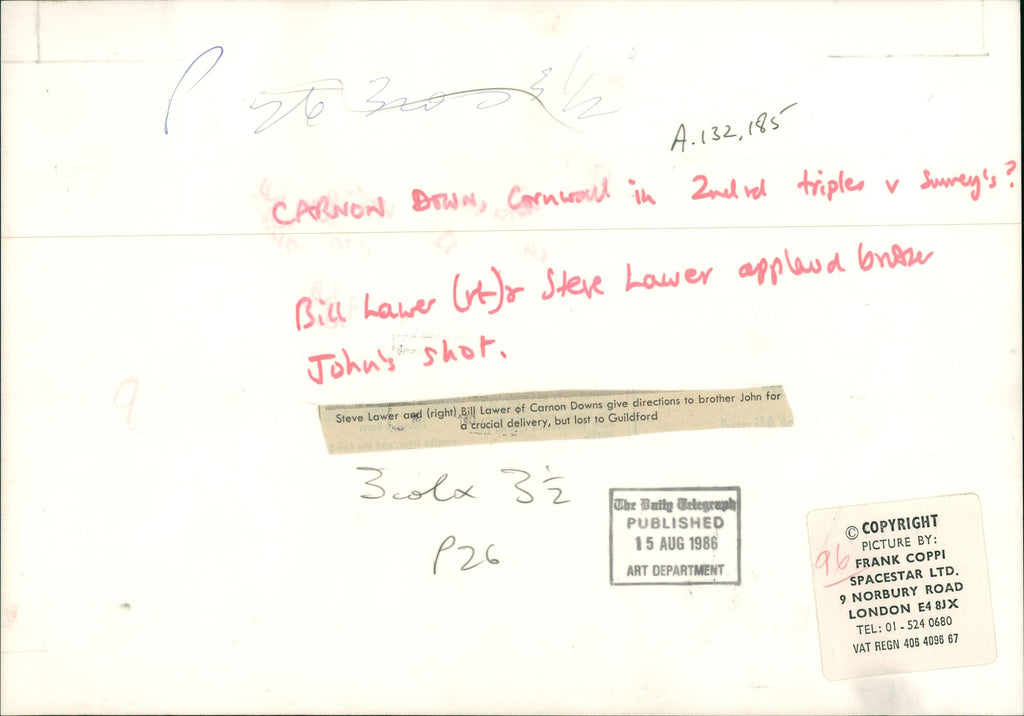 3cols 3 1/2
A.132,185
CARNON DOWN, Cornwall in 2nd rd triples v Surrey's?
Bill Lawer (rt) & Steve Lawer applaud brother
John's shot.
9
Steve Lawer and (right) Bill Lawer of Carnon Downs give directions to brother John for
a crucial delivery, but lost to Guildford
3colx 3 1/2
P26
The Daily Telegraph
PUBLISHED
15 AUG 1986
ART DEPARTMENT
© COPYRIGHT
PICTURE BY:
96
FRANK COPPI
SPACESTAR LTD.
9 NORBURY ROAD
LONDON E4 8JX
TEL: 01-524 0680
VAT REGN 406 4096 67